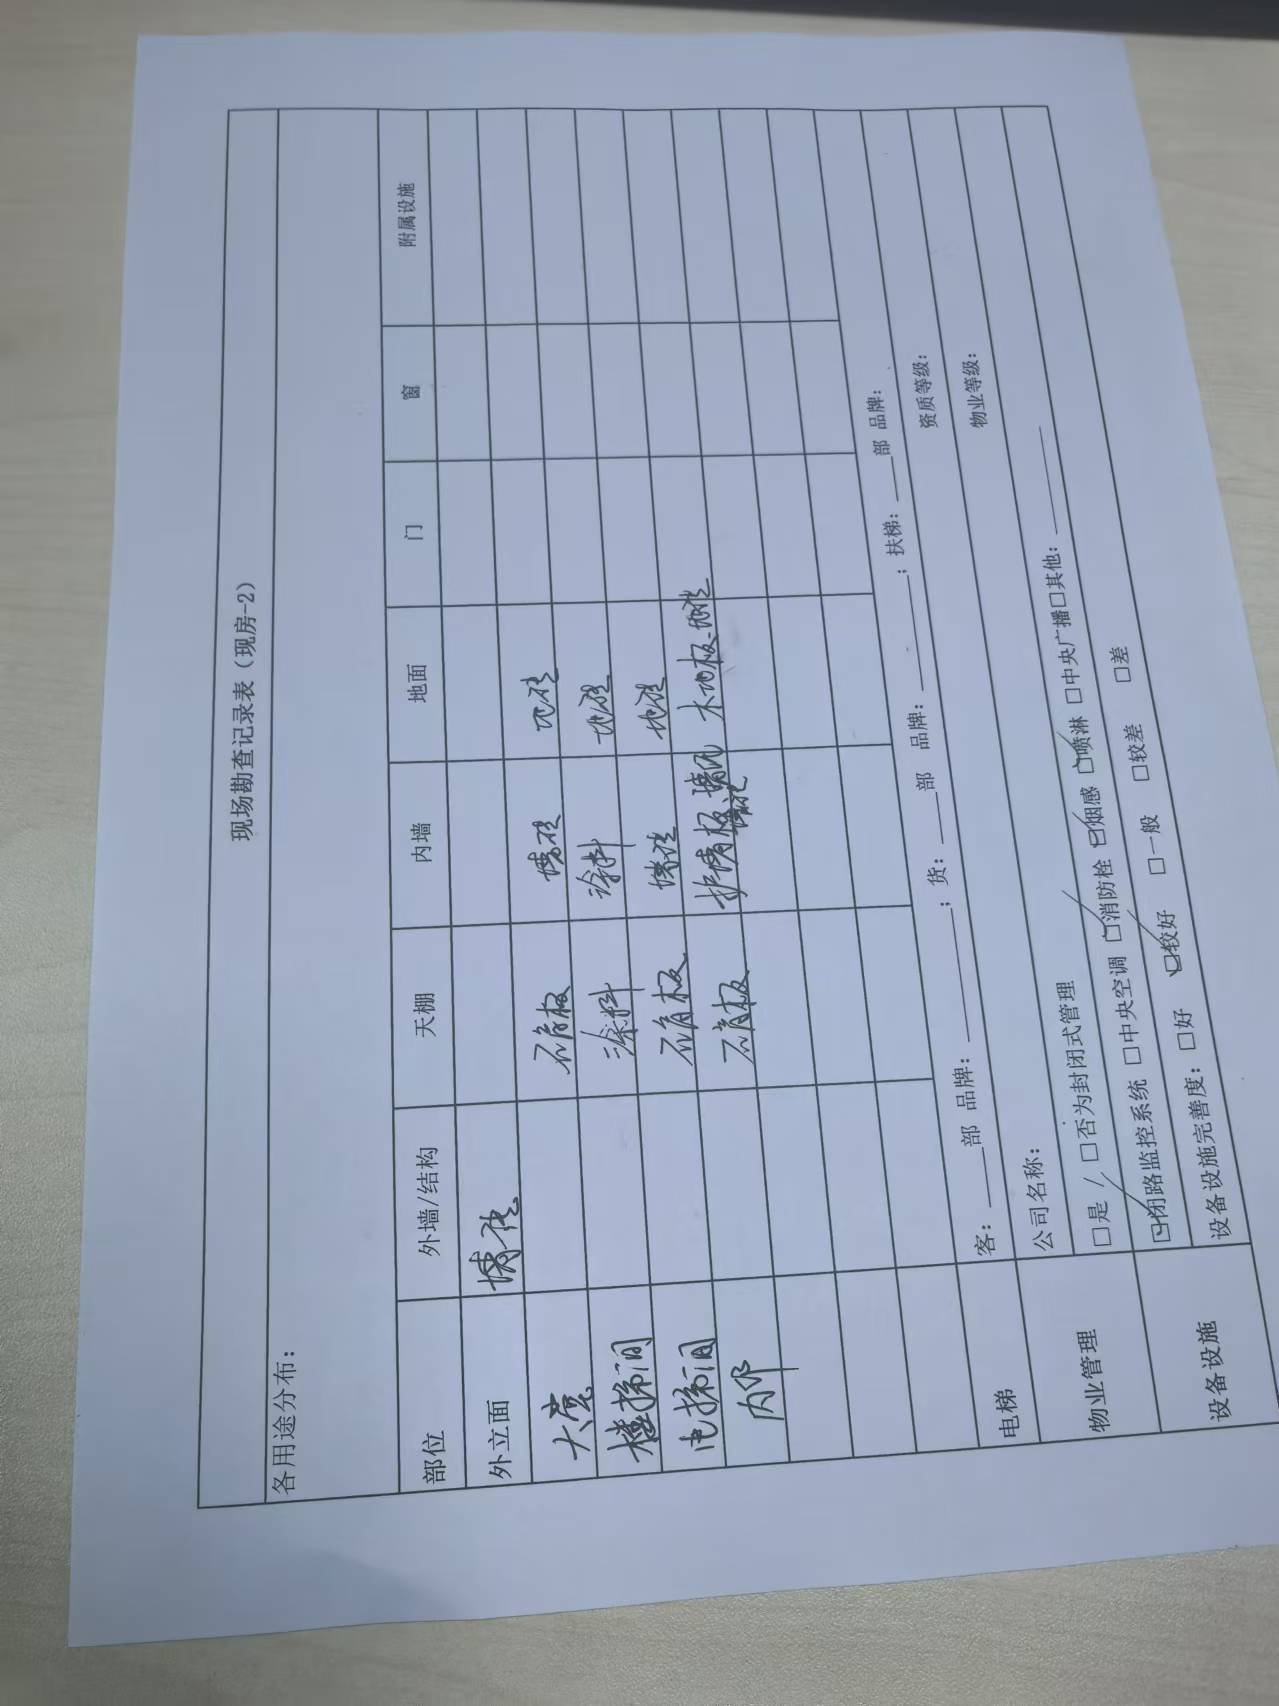 现场勘查记录表（现房-2）
各用途分布：
部位 外墙/结构 天棚 内墙 地面 门 窗 附属设施
外立面 墙砖
大堂 石膏板 墙砖 地砖
楼梯间 涂料 涂料 地砖
电梯间 石膏板 墙砖 地砖
内部 石膏板 护墙板、墙纸 木地板、地砖
墙砖
电梯 客：____部 品牌：________；货：____部 品牌：________；扶梯：____部 品牌：
物业管理 公司名称： 资质等级：
□是/□否为封闭式管理 物业等级：
设备设施 ☑闭路监控系统 □中央空调 ☑消防栓 ☑烟感 ☑喷淋 □中央广播□其他：________
设备设施完善度：□好 ☑较好 □一般 □较差 □差